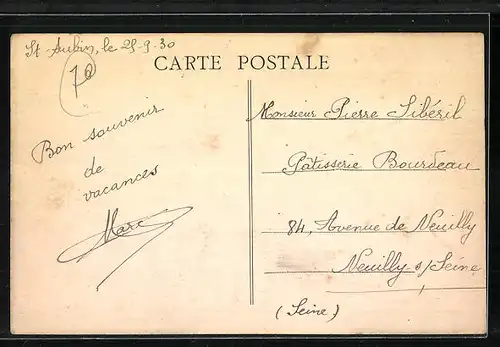 St Aubin, le 25-9-30
70
CARTE POSTALE
Bon souvenir
de
vacances
Marc
Monsieur Pierre Sibéril
Pâtisserie Bourdeau
84, Avenue de Neuilly
Neuilly s/Seine
(Seine)